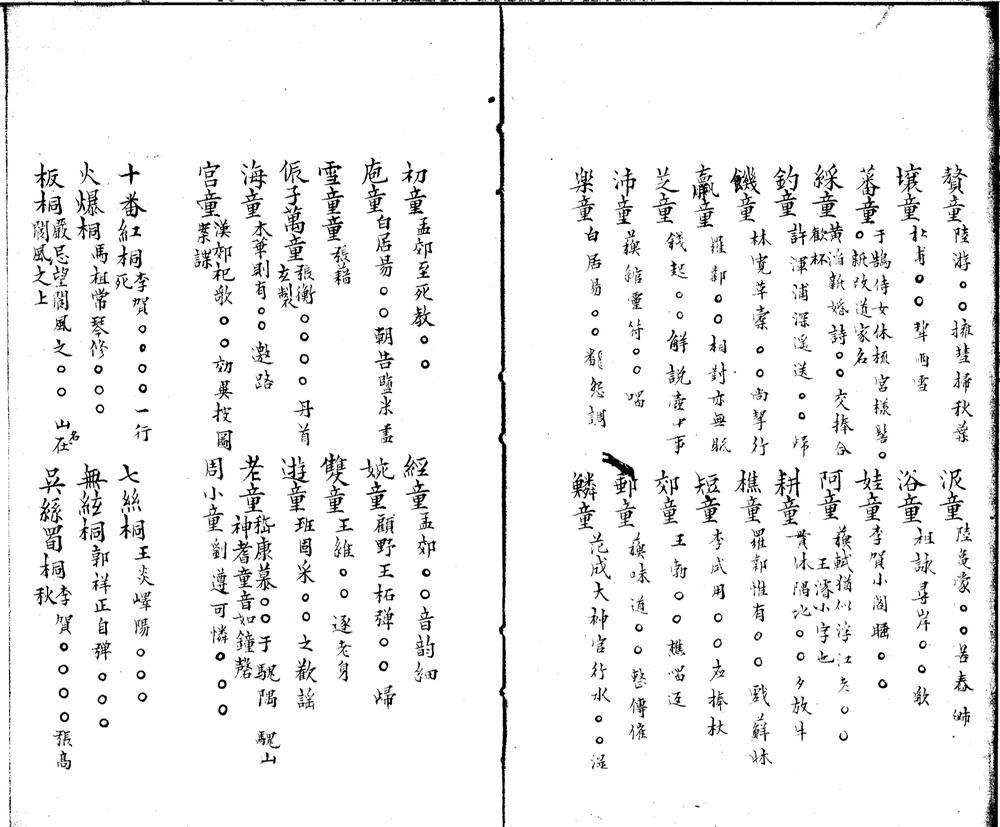 贅童陸游○○擁彗掃秋葉
汲童陸龜蒙○○苦舂
壤童杜甫○○犂雨雪
浴童祖詠尋岸○○歌
蕃童于鵠侍女休梳宮樣髻○○新改道家名
娃童李賀小閣睡○○
綵童黃滔新婚詩○○交捧合歡杯
阿童蘇軾猶似浮江○○ 王濬小字也
釣童許渾浦深遥送○○歸
耕童貫休隔○○夕放牛
饑童林寛草○○尚挈行
樵童羅鄴惟有○○戲蘇妹
羸童羅鄴○○相對亦無
短童李咸用○○應捧杖
芝童錢起○○解說壺中事
郊童王勃○○樵唱返
沛童蘇綰靈符○○唱
郵童蘇味道○○整傳催
樂童白居易○○怨調
鱗童范成大神官行水○○湿
初童孟郊至死教○○
經童孟郊○○音韵細
庖童白居易○○朝告鹽米盡
婉童顧野王柘彈○○歸
雪童童張籍
雙童王維○○逐老身
侲子萬童張衡○○○○丹首玄製
遊童班固采○○之歡謡
海童木華則有○○邀路
老童嵇康慕○○于騩隅 騩山神耆童音如鐘磬
宮童漢郊祀歌○○効異按圖案諜
周小童劉遵可憐○○○
十番紅桐李賀○○○○一行死
七絲桐王炎嶧陽○○○
火爆桐馬祖常琴修○○○
無絃桐郭祥正自彈○○○
板桐嚴忌望閬風之○○ 山名在閬風之上
吳絲蜀桐李賀○○○○張高秋